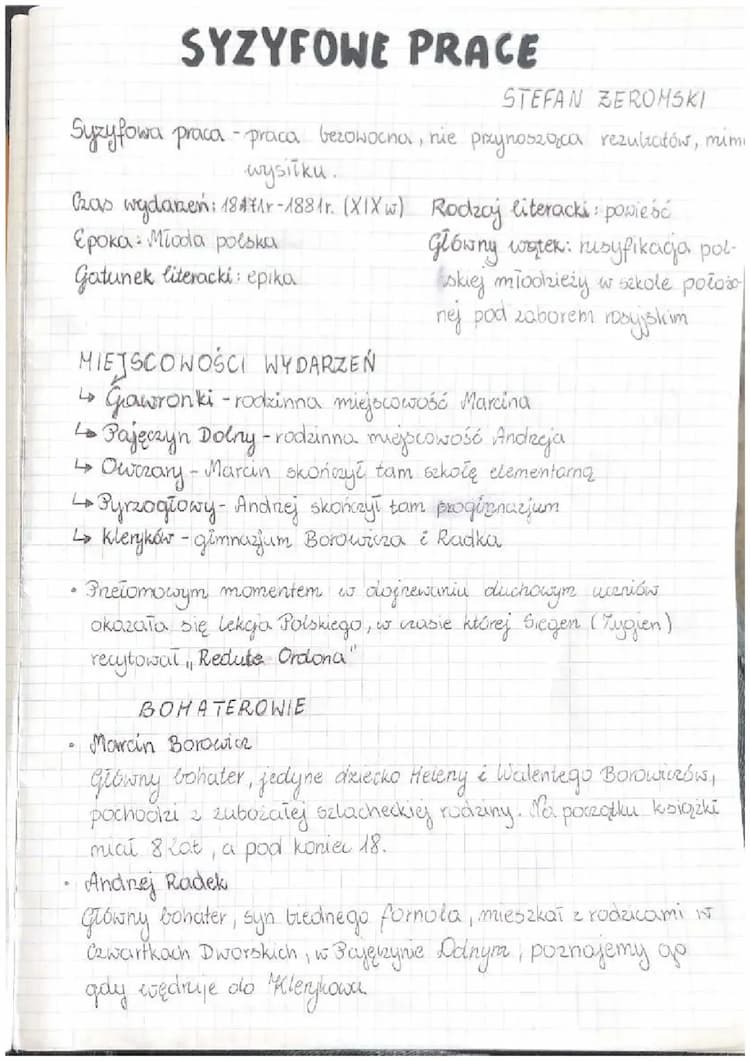 SYZYFOWE PRACE
STEFAN ŻEROMSKI
Syzyfowa praca - praca bezowocna, nie przynosząca rezultatów, mim
wysiłku.
Czas wydarzeń: 1871r-1881r. (XIX w)
Epoka: Młoda polska
Gatunek literacki: epika
Rodzaj literacki: powieść
Główny wątek: rusyfikacja pol-
skiej młodzieży w szkole położo-
nej pod zaborem rosyjskim
MIEJSCOWOŚCI WYDARZEŃ
↳ Gawronki - rodzinna miejscowość Marcina
↳ Pajęczyn Dolny - rodzinna miejscowość Andrzeja
↳ Owczary - Marcin skończył tam szkołę elementarną
↳ Pyrzogłowy - Andrzej skończył tam progimnazjum
↳ Kleryków - gimnazjum Borowicza i Radka
• Przełomowym momentem w dojrzewaniu duchowym uczniów
okazała się lekcja Polskiego, w czasie której Siegen (Zygien)
recytował „Reduta Ordona"
BOHATEROWIE
• Marcin Borowicz
Główny bohater, jedyne dziecko Heleny i Walentego Borowiczów,
pochodzi z zubożałej szlacheckiej rodziny. Na początku książki
miał 8 lat, a pod koniec 18.
• Andrzej Radek
Główny bohater, syn biednego fornola, mieszkał z rodzicami w
Czwartkach Dworskich, w Pajęczynie Dolnym, poznajemy go
gdy wędruje do Klerykowa.